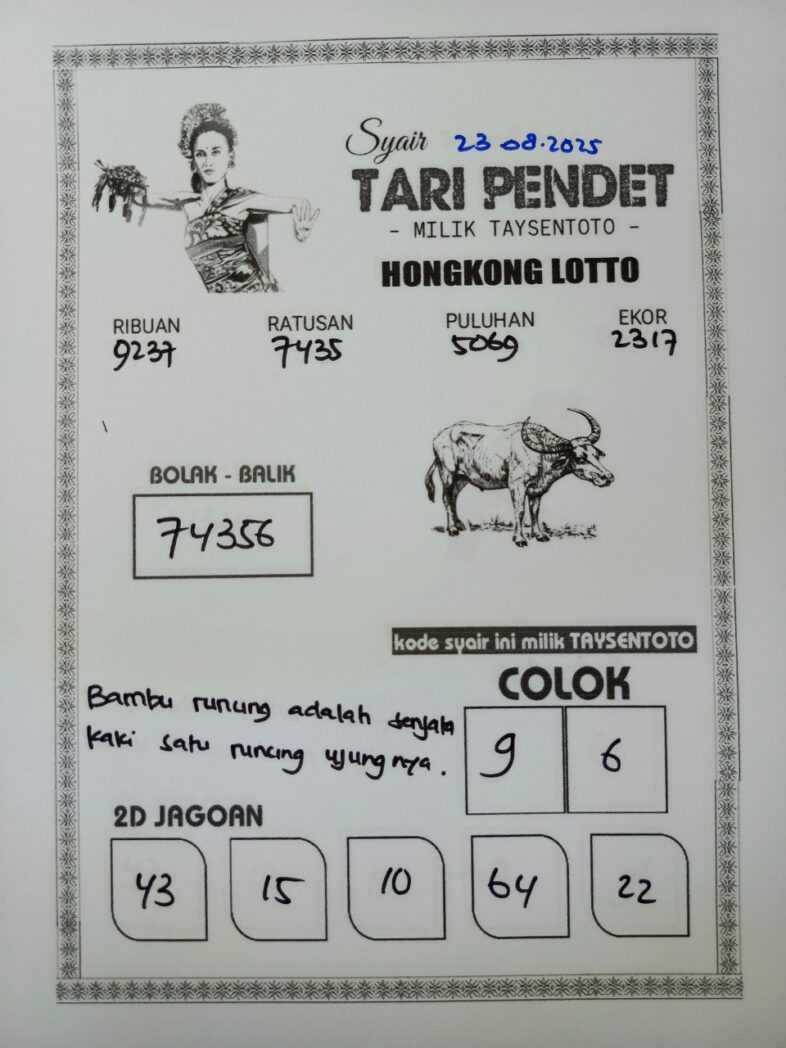 Syair 23 08.2025
TARI PENDET
- MILIK TAYSENTOTO -
HONGKONG LOTTO
RIBUAN RATUSAN PULUHAN EKOR
9237 7435 5069 2317
BOLAK - BALIK
74356
kode syair ini milik TAYSENTOTO
COLOK
9 6
Bambu runcing adalah senjata
kaki satu runcing ujungnya.
2D JAGOAN
43 15 10 64 22